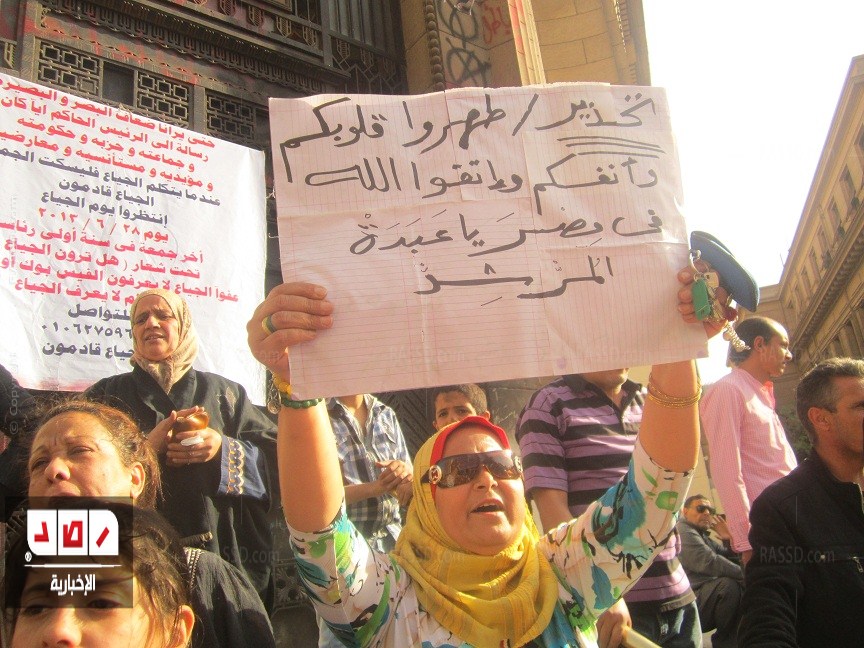 تحذير / طهروا قلوبكم
وأنفسكم واتقوا الله
فى مِصْرَ يا عَبَدَةْ
المُرْشِدْ
حتى يرانا ضعاف البصر و البصيرة
رسالة الى الرئيس الحاكم أياً كان
و جماعته و حزبه و حكومته
و مؤيديه و مستأنسيه و معارضي
عندما يتكلم الجياع فليسكت الجم
الجياع قادمون
إنتظروا يوم الجياع
يوم ٢٨ / ٦ / ٢٠١٣
آخر جمعة فى سنة أولى رئاس
تحت شعار ( هل ترون الجياع
عفوا الجياع لا يعرفون الفيس بوك أو
م لا يعرف الجياع
للتواصل
٠١٠٦٢٧٥٩٦
ياع قادمون
رصد
الإخبارية
RASSD.com